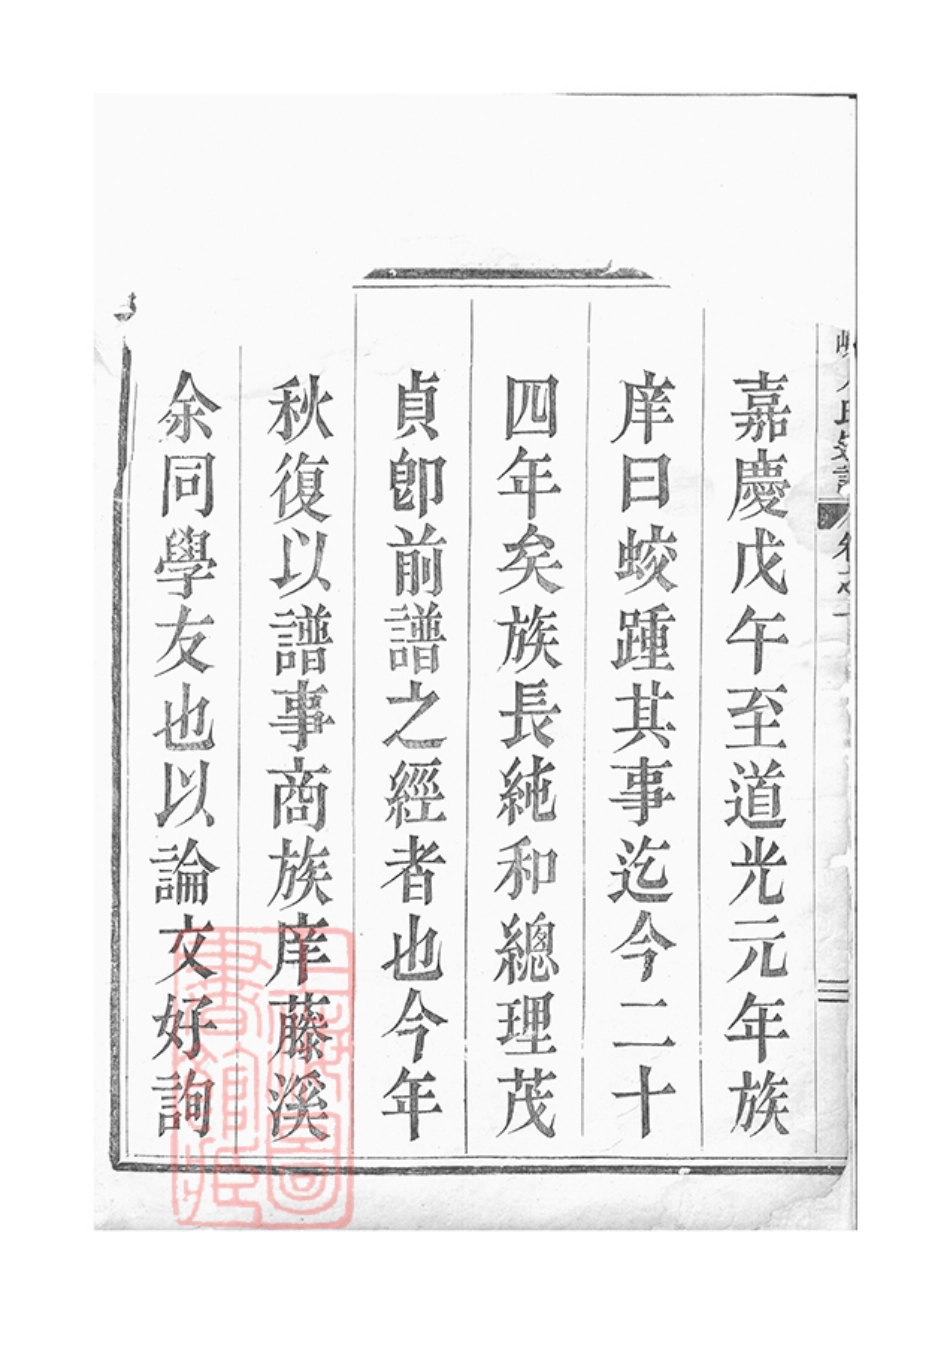 嘉慶戊午至道光元年族
庠曰蛟踵其事迄今二十
四年矣族長純和總理茂
貞卽前譜之經者也今年
秋復以譜事商族庠藤溪
余同學友也以論文好詢
氏
卷之一
上海圖書館藏